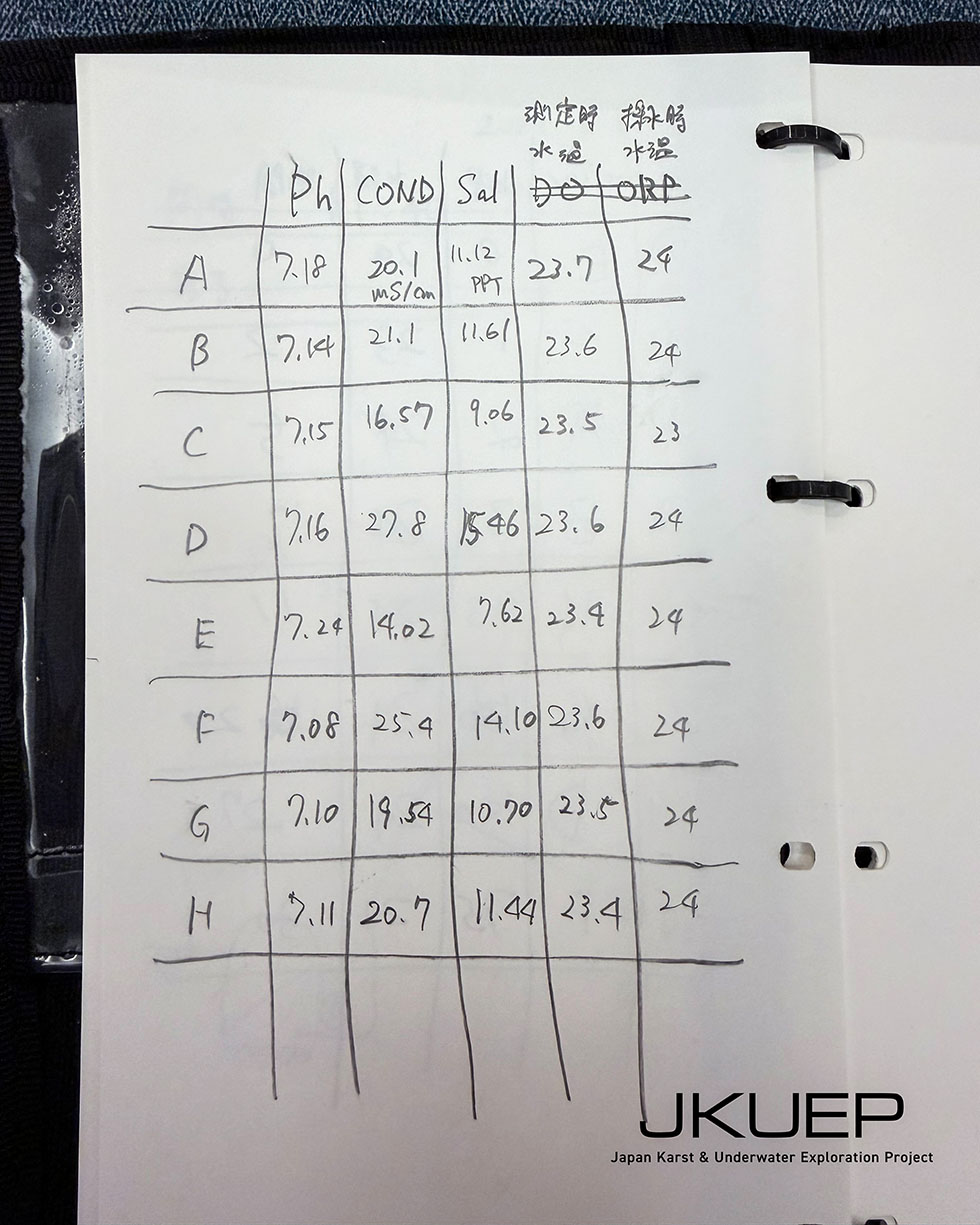 測定時 採水時
水温 水温
Ph COND Sal DO ORP
A 7.18 20.1 mS/cm 11.12 PPT 23.7 24
B 7.14 21.1 11.61 23.6 24
C 7.15 16.57 9.06 23.5 23
D 7.16 27.8 15.46 23.6 24
E 7.24 14.02 7.62 23.4 24
F 7.08 25.4 14.10 23.6 24
G 7.10 19.54 10.70 23.5 24
H 7.11 20.7 11.44 23.4 24
JKUEP
Japan Karst & Underwater Exploration Project